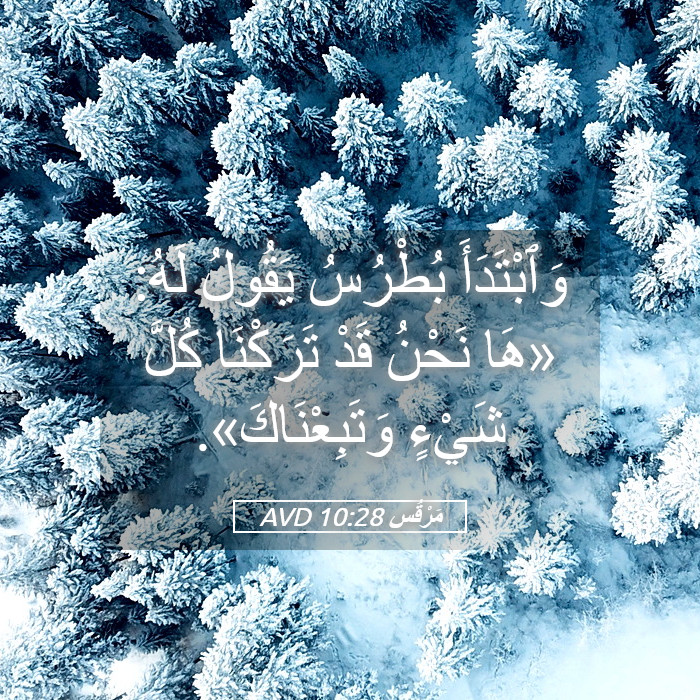 وَٱبْتَدَأَ بُطْرُسُ يَقُولُ لَهُ:
«هَا نَحْنُ قَدْ تَرَكْنَا كُلَّ
شَيْءٍ وَتَبِعْنَاكَ».
مَرْقُس 10:28 AVD